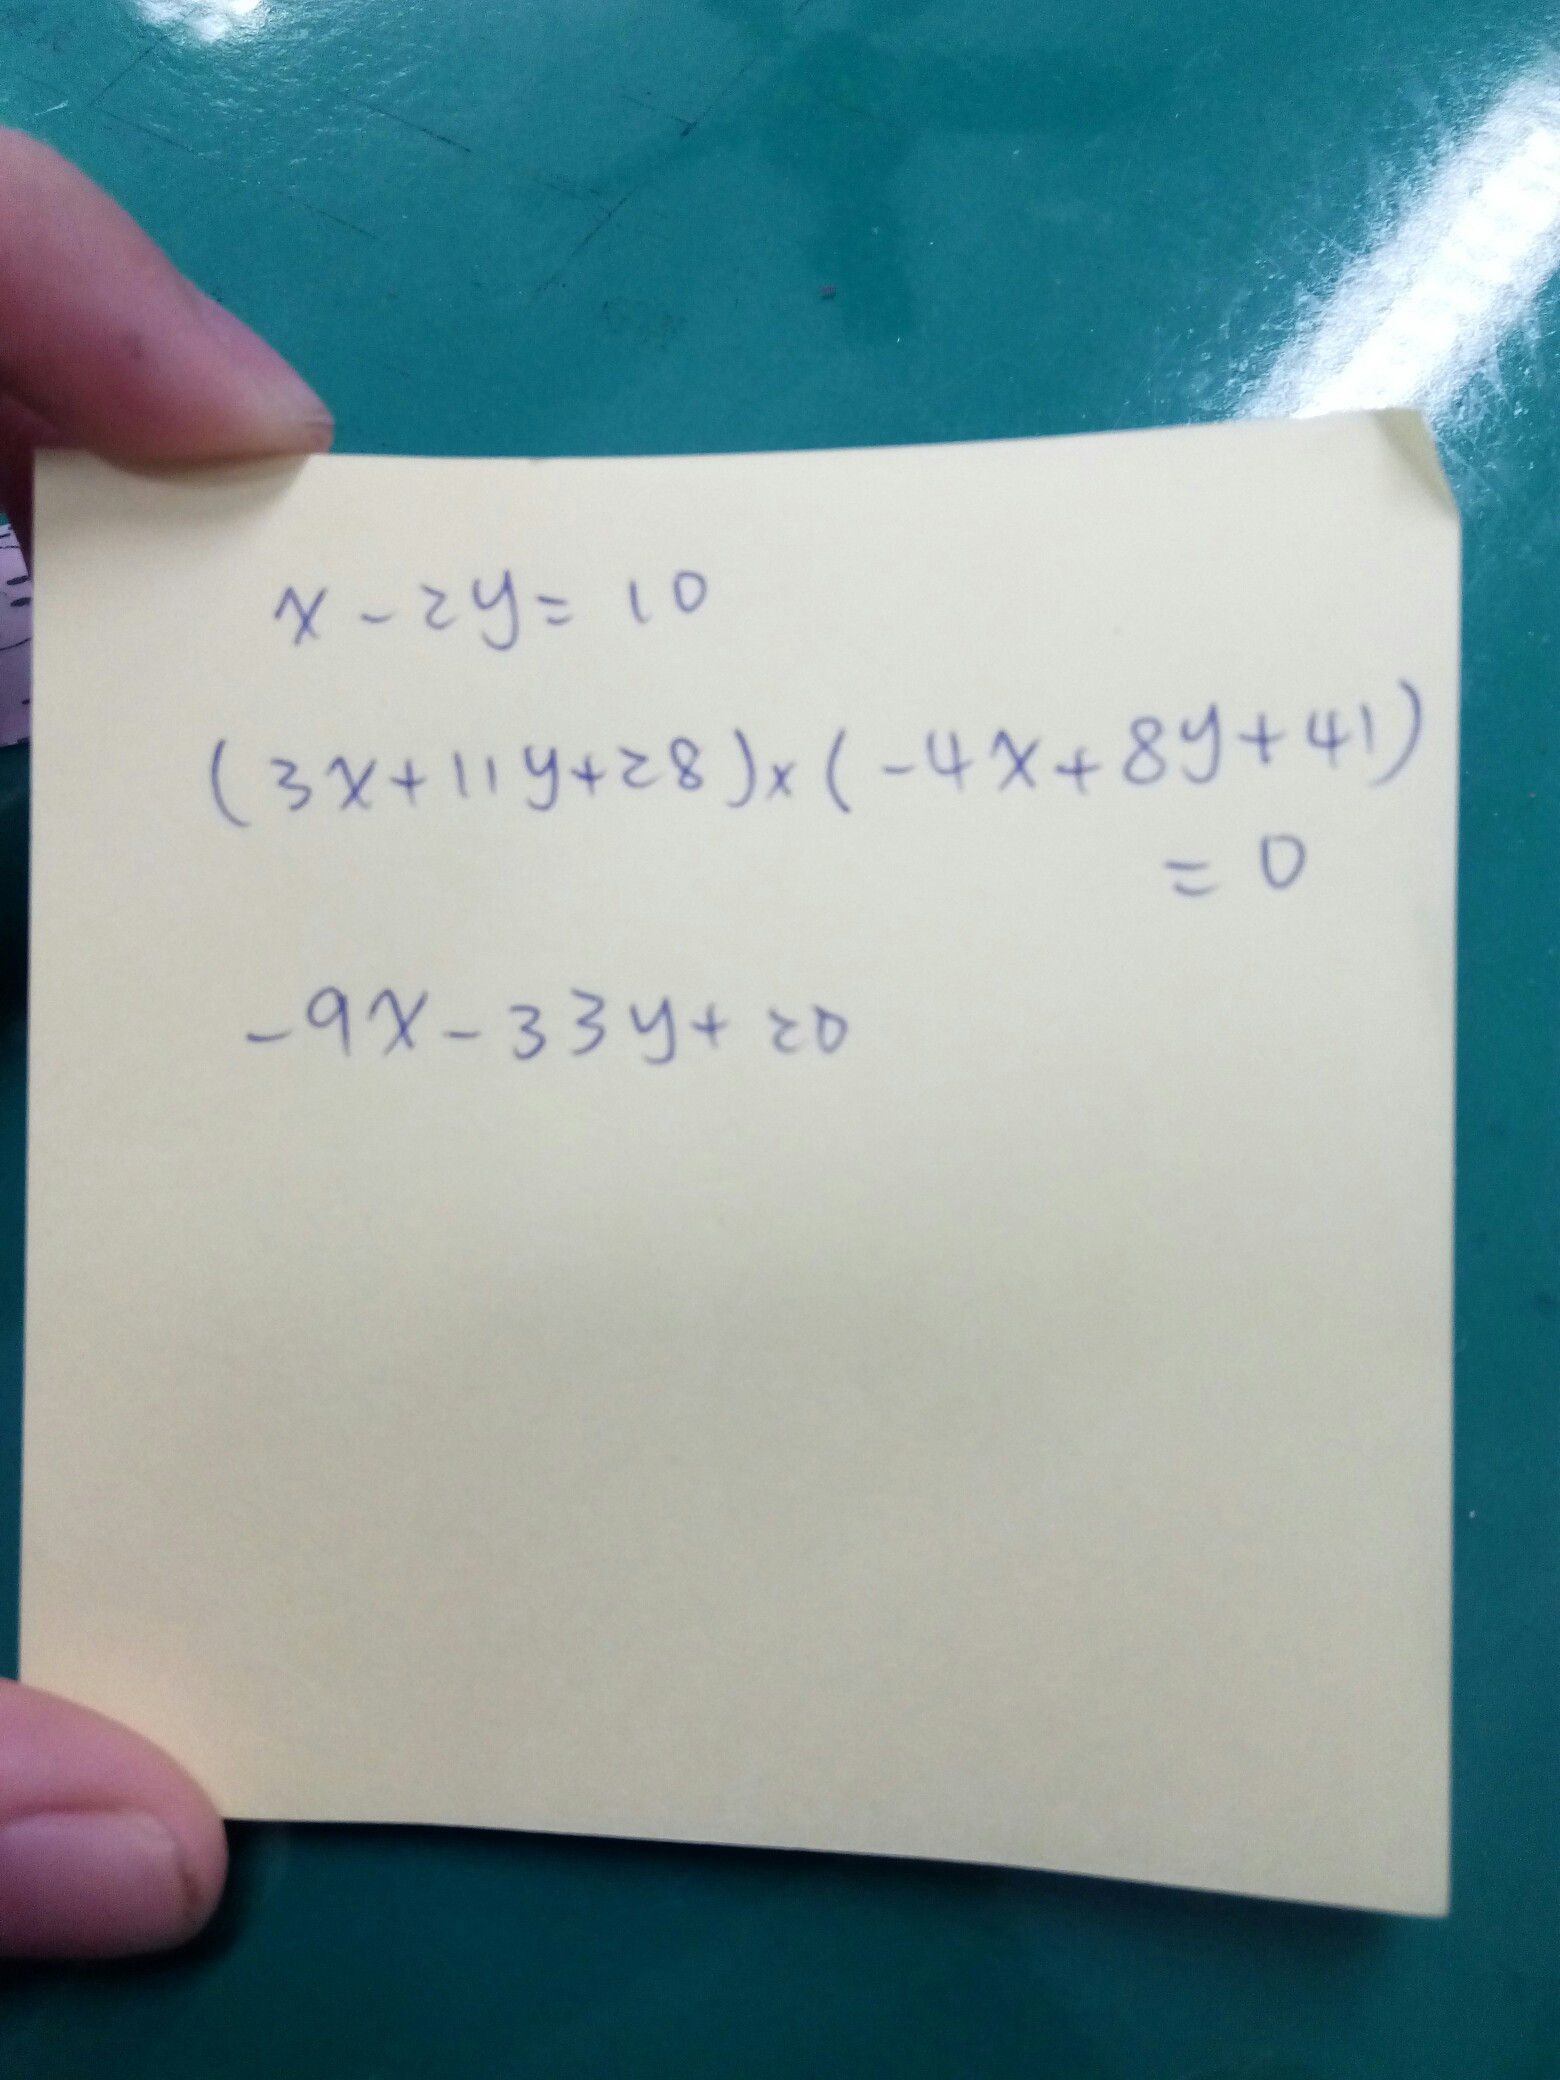 x-2y=10
(3x+11y+28)x(-4x+8y+41)
=0
-9x-33y+20